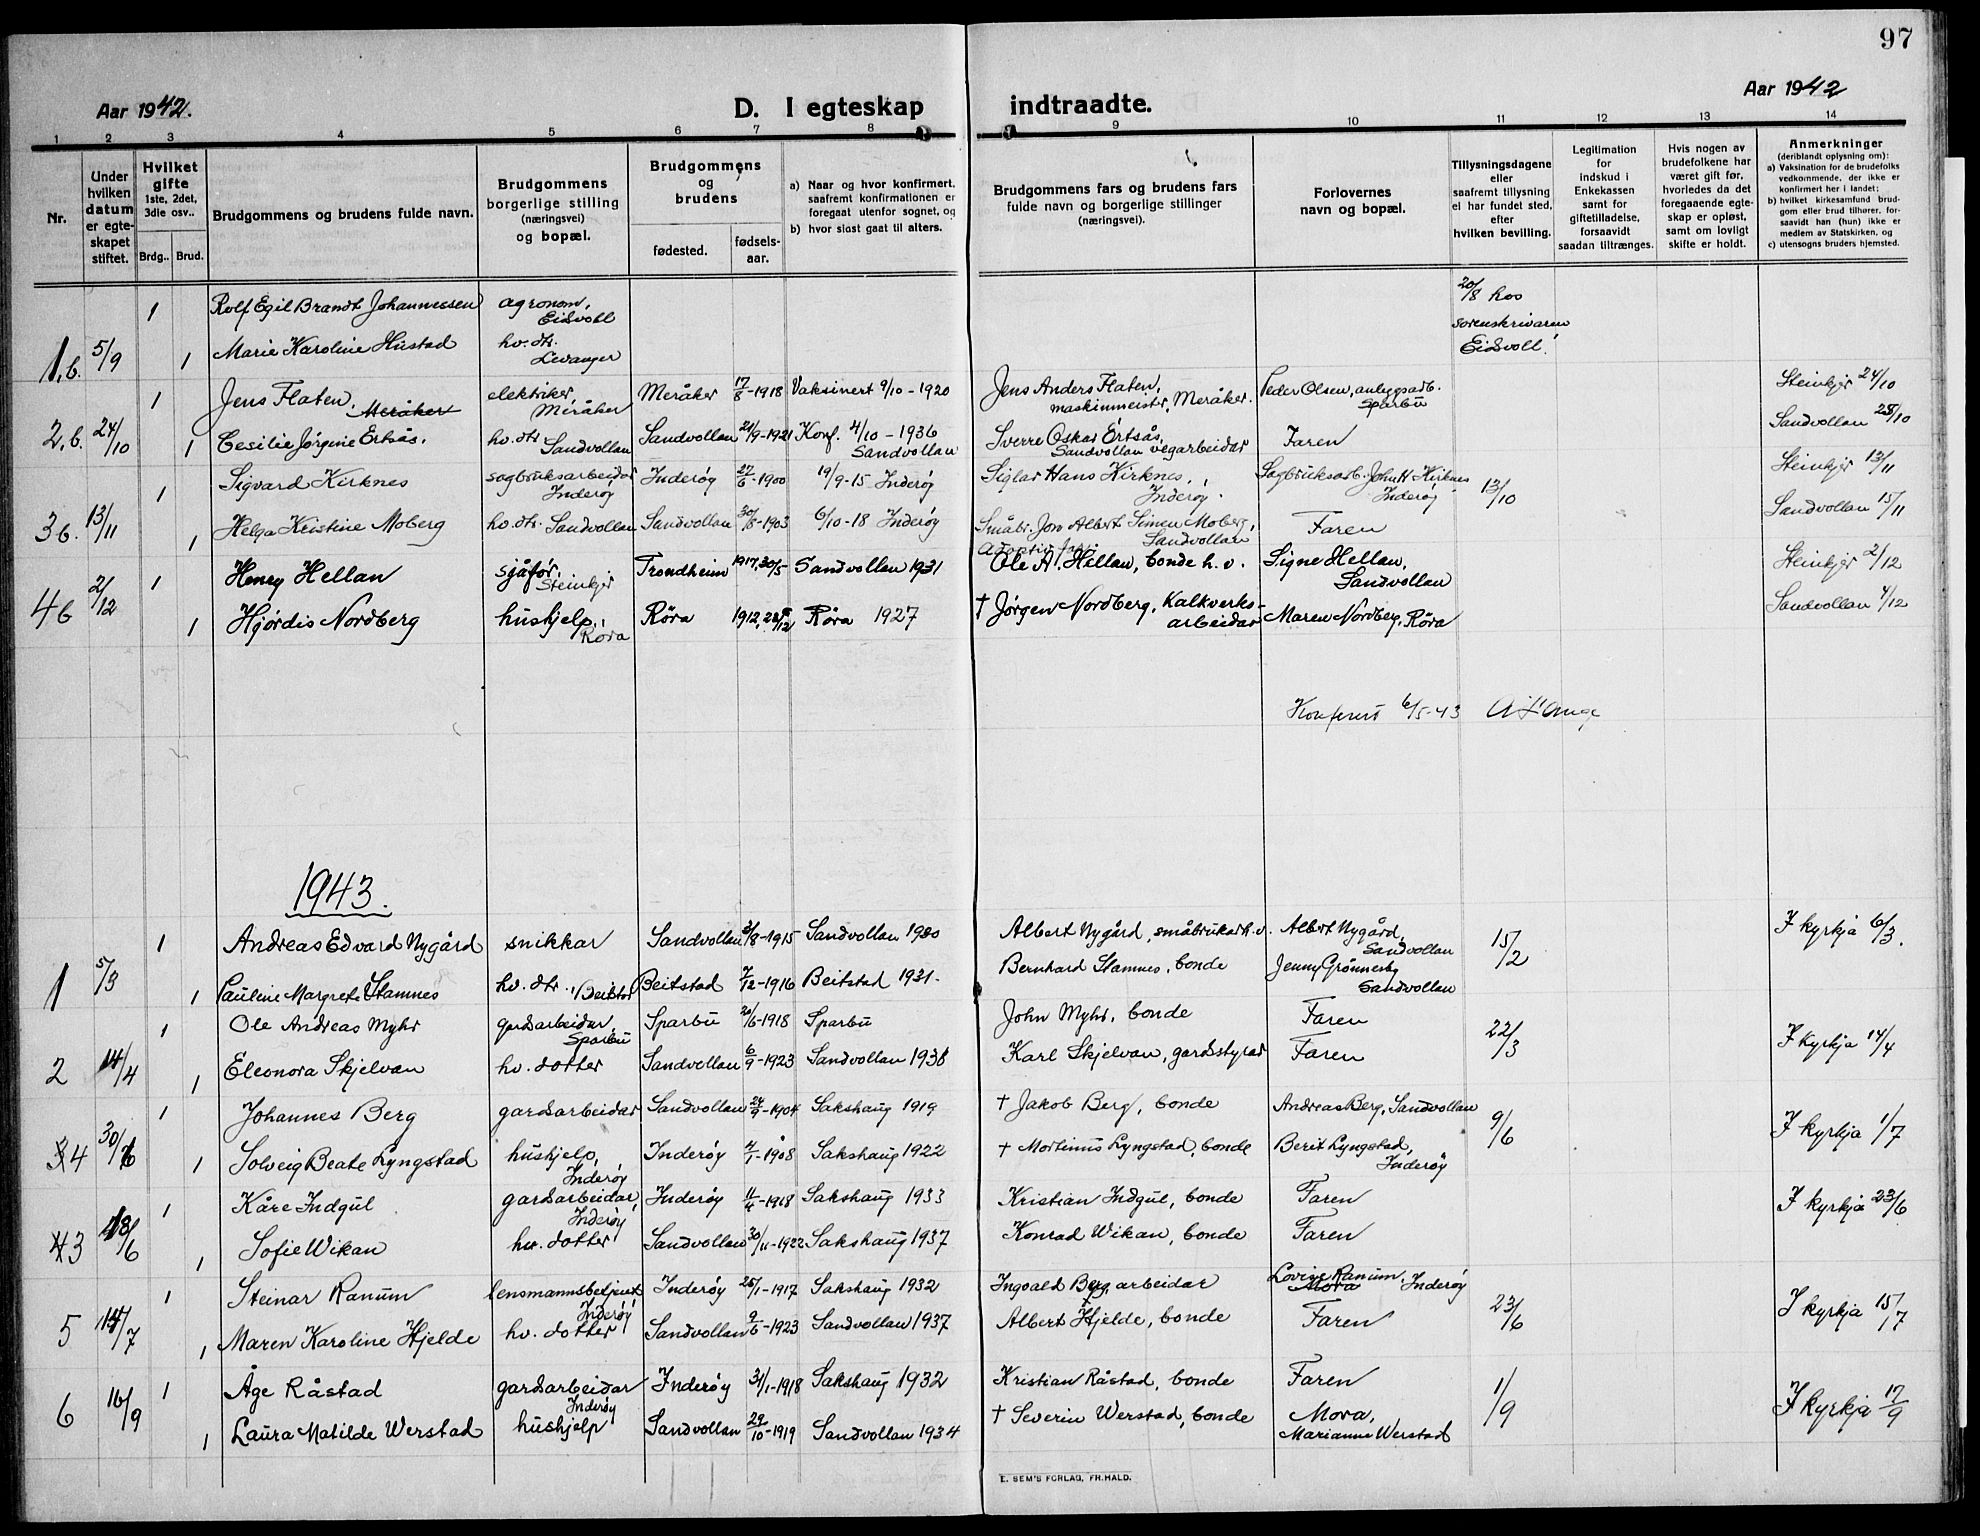 97
Aar 1942.
D. I egteskap indtraadte.
Aar 1942
1 2 3 4 5 6 7 8 9 10 11 12 13 14
Nr.
Under hvilken datum er egteskapet stiftet.
Hvilket gifte 1ste, 2det, 3die osv..
Brdg.. Brud.
Brudgommens og brudens fulde navn.
Brudgommens borgerlige stilling (næringsvei) og bopæl.
Brudgommens og brudens
fødested. fødselsaar.
a) Naar og hvor konfirmert. saafremt konfirmationen er foregaat utenfor sognet, og
b) hvor sidst gaat til alters.
Brudgommens fars og brudens fars fulde navn og borgerlige stillinger (næringsvei).
Forlovernes navn og bopæl.
Tillysningsdagene eller saafremt tillysning ei har fundet sted, efter hvilken bevilling.
Legitimation for indskud i Enkekassen samt for giftetilladelse, forsaavidt saadan tiltrænges.
Hvis nogen av brudefolkene har været gift før, hvorledes da det foregaaende egteskap er opløst, samt om lovligt skifte er holdt.
Anmerkninger
(deriblandt oplysning om):
a) Vaksination for de brudefolks vedkommende, der ikke er konfirmert her i landet;
b) hvilket kirkesamfund brudgom eller brud tilhører, forsaavidt han (hun) ikke er medlem av Statskirken, og
c) utensogns bruders hjemsted.
1 Rolf Egil Brandt Johannessen agronom, Eidsvoll 20/8 hos sorenskrivaren Eidsvoll.
1.b. 5/9 1 Marie Karoline Hustad hv. dtr. Levanger
1 Jens Flaten, Meråker elektriker, Meråker Meråker 17/8-1918 Vaksinert 9/10-1920 Jens Anders Flaten, maskinmeister, Meråker. Peder Olsen, anleggsarb. Sparbu Steinkjer 24/10
2.b. 24/10 1 Cesilie Jørgine Ertsås. hv. dtr. Sandvollan Sandvollan 21/9-1921 Konf. 4/10-1936 Sandvollan Sverre Oskar Ertsås, Sandvollan vegarbeidar Faren Sandvollan 28/10
1 Sigvard Kirknes sagbruksarbeidar Inderøy Inderøy 27/6-1900 19/9-15 Inderøy Siglar Hans Kirknes, Inderøy. Sagbruksarb. John H. Kirknes Inderøy 13/10 Steinkjer 13/11
3b. 13/11 1 Helga Kristine Moberg hv. dtr. Sandvollan Sandvollan 30/8-1903 6/10-18 Inderøy Småbr. Jon Albert Simen Moberg, Sandvollan Faren Sandvollan 15/11
2/12 1 Henry Hellan sjåfør, Steinkjer Trondheim 1917, 30/5 Sandvollan 1931 Adoptiv far: Ole A. Hellan, bonde h. v. Signe Hellan, Sandvollan Steinkjer 2/12
4b 1 Hjørdis Nordberg hushjelp, Røra Røra 1912, 28/12 Røra 1927 † Jørgen Nordberg, Kalkverksarbeidar Maren Nordberg, Røra Sandvollan 4/12
Konferert 6/5-43
1943.
1 Andreas Edvard Nygård snikkar Sandvollan 3/8-1915 Sandvollan 1930 Albert Nygård, småbrukar h.v. Albert Nygård, Sandvollan 15/2 I kyrkja 6/3.
1 5/3 1 Pauline Margrete Stamnes hv. dtr. Beitstad Beitstad 7/12-1916 Beitstad 1931. Bernhard Stamnes, bonde Jenny Grønnesby Sandvollan
1 Ole Andreas Myhr gardsarbeidar, Sparbu Sparbu 20/6-1918 Sparbu John Myhr, bonde Faren 22/3 I kyrkja 14/4
2 14/4 1 Eleonora Skjelvan hv. dotter Sandvollan 6/9-1923 Sandvollan 1938 Karl Skjelvan, gardsstyrar Faren
1 Johannes Berg gardsarbeidar Sandvollan 24/9-1904 Sakshaug 1919 † Jakob Berg, bonde Andreas Berg, Sandvollan 9/6 I kyrkja 1/7
4 30/6 1 Solveig Beate Lyngstad hushjelp, Inderøy Inderøy 4/1-1908 Sakshaug 1922 † Mortinus Lyngstad, bonde Berit Lyngstad, Inderøy
1 Kåre Indgul gardsarbeidar, Inderøy Inderøy 11/4-1918 Sakshaug 1933 Kristian Indgul, bonde Faren I kyrkja 23/6
3 1 Sofie Wikan hv. dotter Sandvollan 30/11-1922 Sakshaug 1937 Konrad Wikan, bonde Faren
1 Steinar Ranum lensmannsbetjent Inderøy Inderøy 25/1-1917 Sakshaug 1932 Ingvald Berg, arbeidar Lovise Ranum, Mora Inderøy 23/6 I kyrkja 15/7
5 14/7 1 Maren Karoline Hjelde hv. dotter Sandvollan 9/6-1923 Sandvollan 1937 Albert Hjelde, bonde Faren
1 Åge Råstad gardsarbeidar Inderøy Inderøy 31/1-1918 Sakshaug 1932 Kristian Råstad, bonde Faren 1/9 I kyrkja 17/9
6 16/9 1 Laura Matilde Werstad hushjelp Sandvollan 29/10-1919 Sandvollan 1934 † Severin Werstad, bonde Mora, Marianne Werstad
E. SEM'S FORLAG, FR.HALD.